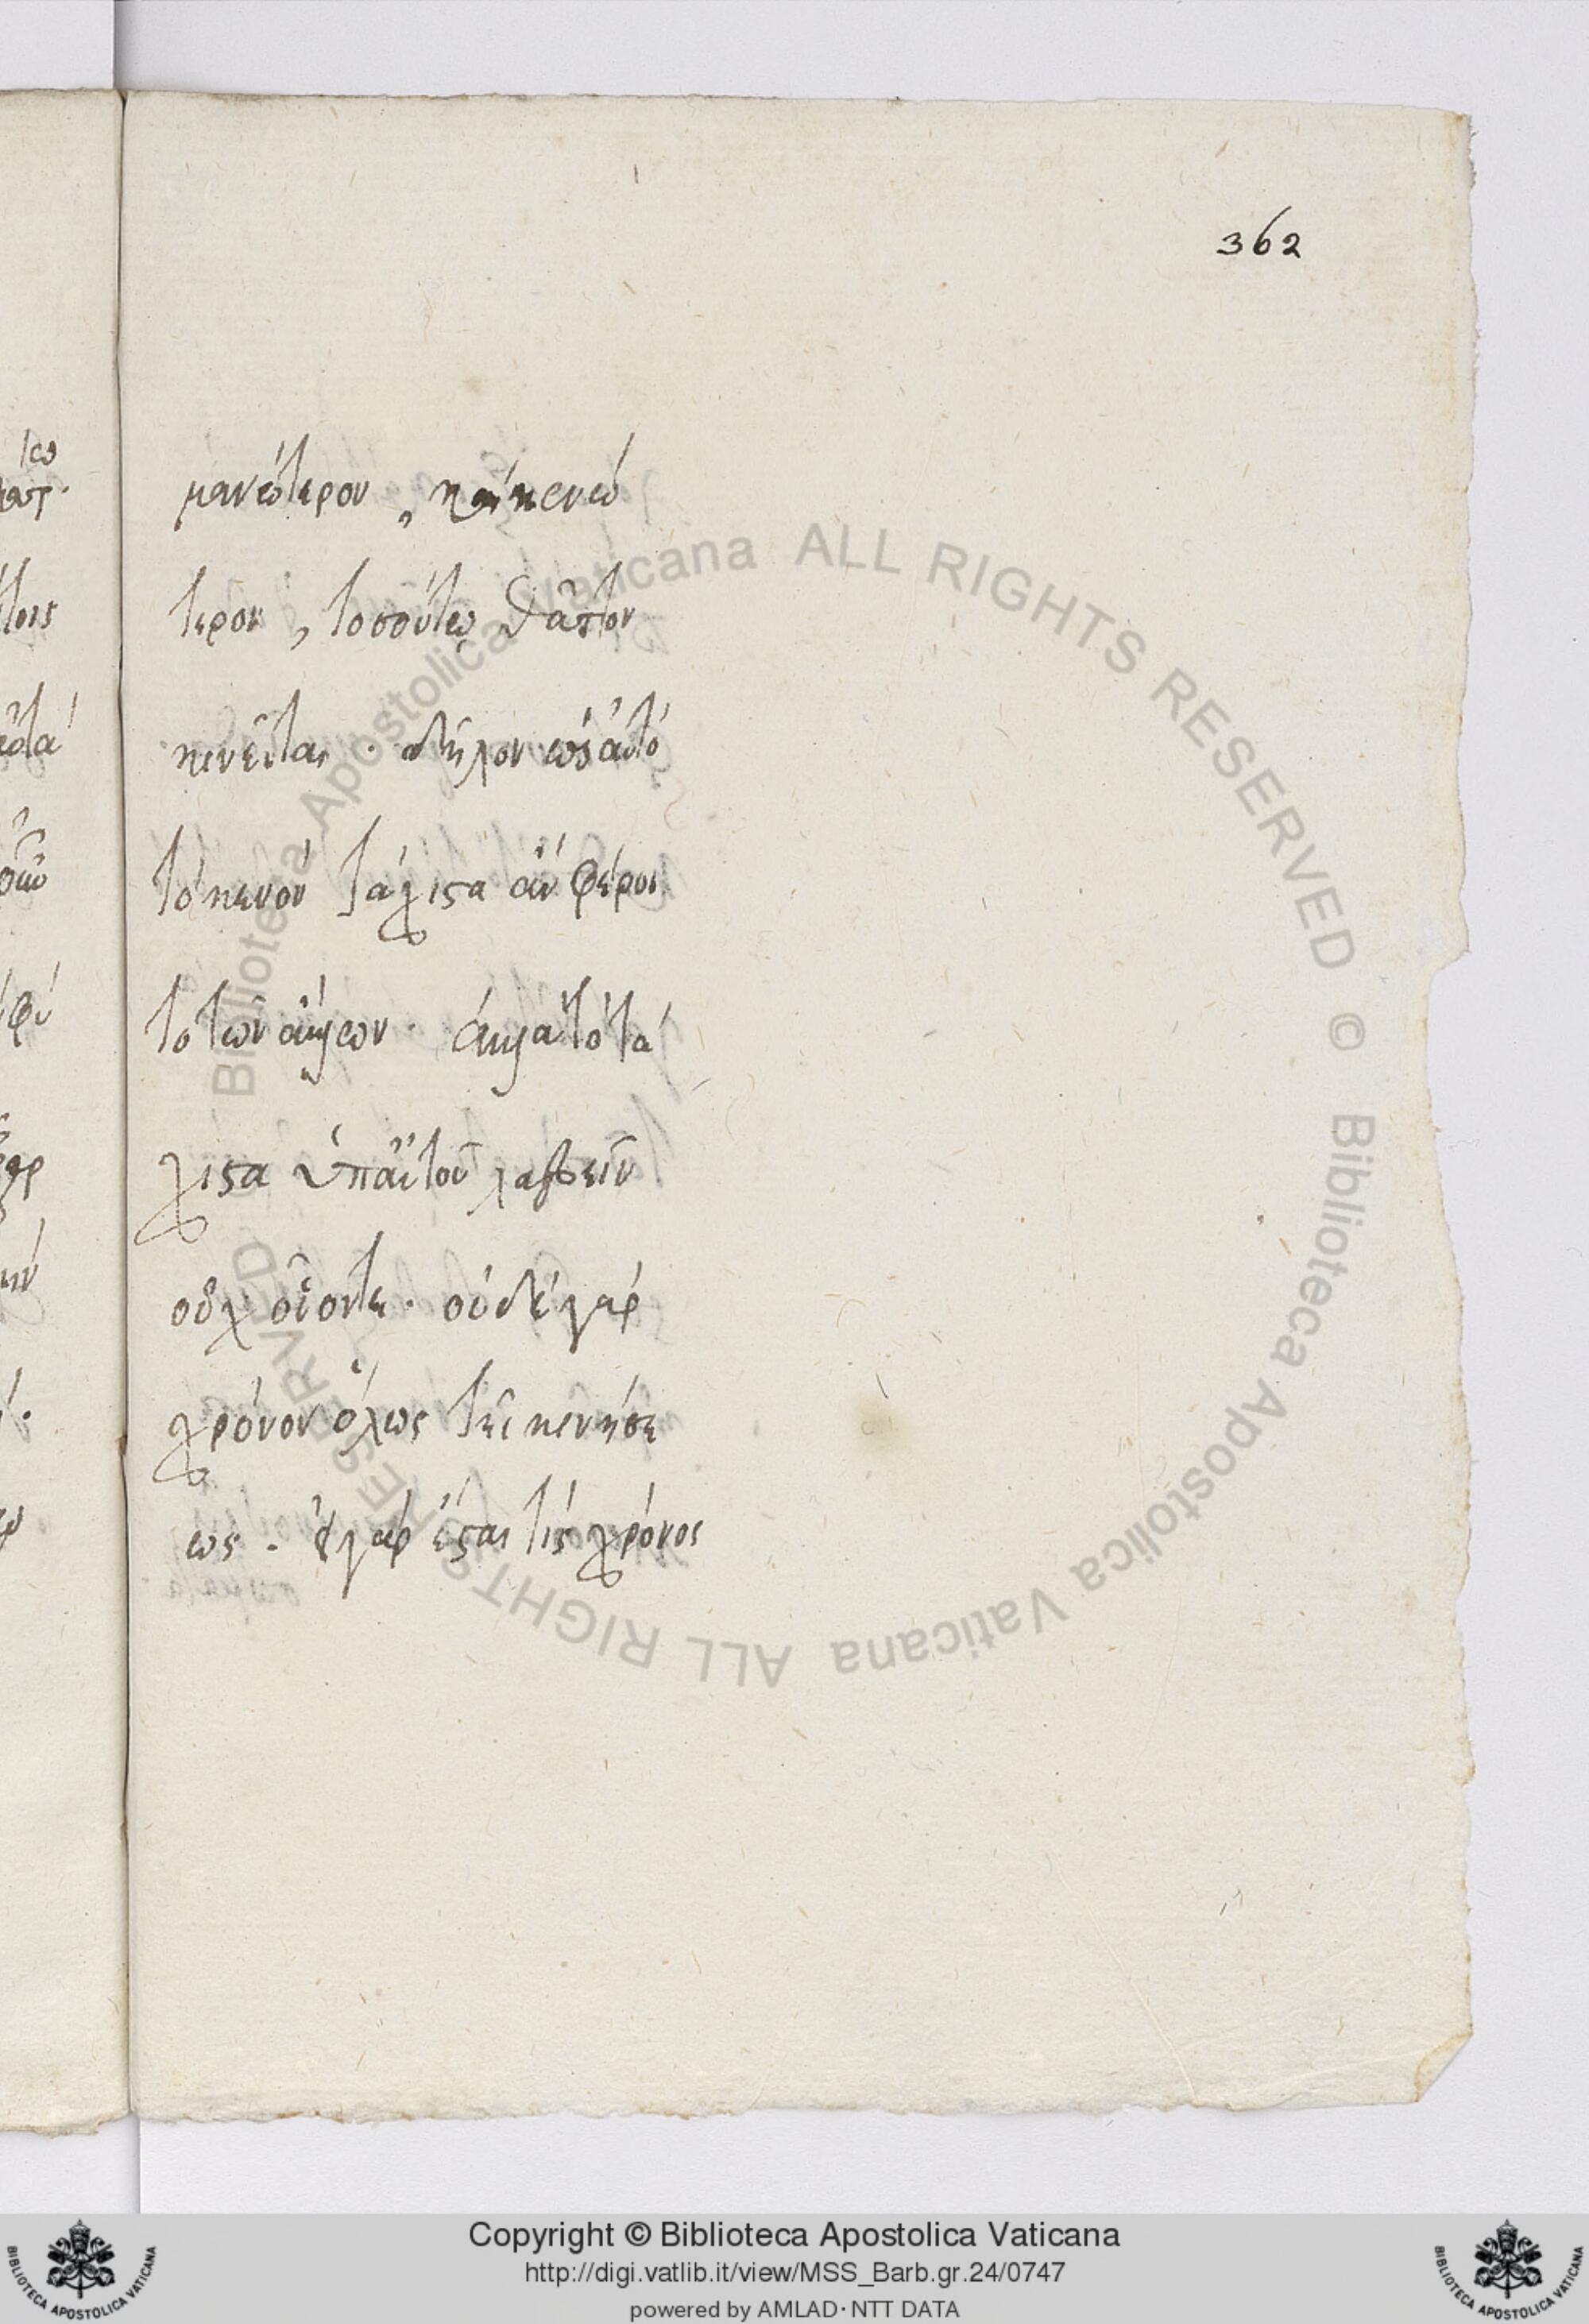 362
μανώτερον, καὶ κενώ
τερον, τοσούτω θᾶττον
κενεῖται. δῆλον ὡς αὐτὸ
τὸ κενὸν τάχιστα ἂν φέροι
το των
χιστα ὑπ' αὐτοῦ λαβεῖν
οὐχ οἷόντε. οὐδὲ γὰρ
χρόνον ὅλως τῆς κενήσε
ως. εἰ γὰρ ἔσται τίς χρόνος
ALL RIGHTS RESERVED © Biblioteca Apostolica Vaticana ALL RIGHTS RESERVED © Biblioteca Apostolica Vaticana
Copyright © Biblioteca Apostolica Vaticana
http://digi.vatlib.it/view/MSS_Barb.gr.24/0747
powered by AMLAD·NTT DATA
BIBLIOTECA APOSTOLICA VATICANA
BIBLIOTECA APOSTOLICA VATICANA